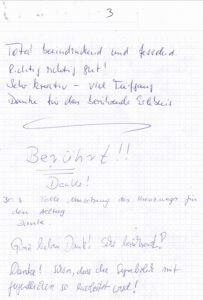 3
Total beeindruckend und fesselnd
Richtig richtig gut!
Sehr kreativ – viel Tiefgang
Danke für das berührende Erlebnis
Berührt!!
Danke!
Tolle Umsetzung des Kreuzwegs für
den Alltag
Danke
Ganz lieben Dank! Sehr berührend!
Danke! Schön, dass die Symbolik mit
Jugendlichen so wird!